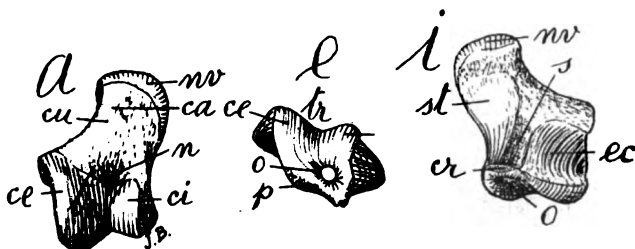 a
nv
cu
ca
n
ce
ci
J.B.
l
ce
tr
o
p
i
nv
s
st
cr
ec
O